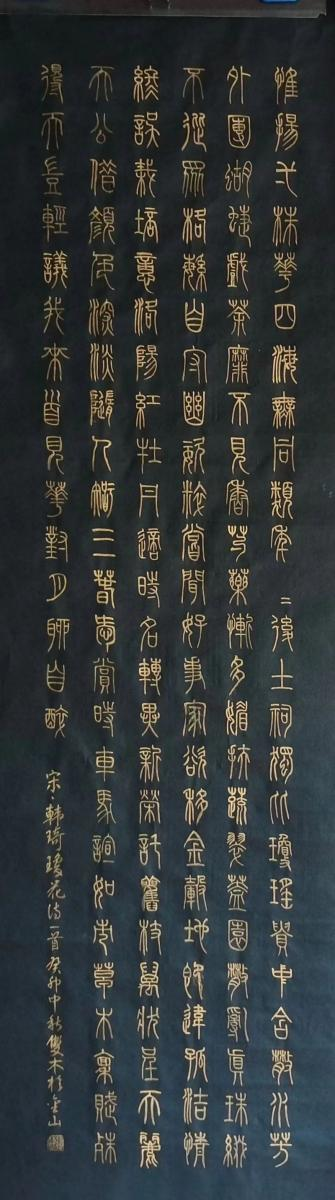 惟揚弌株華四海無同類年〻後土祠獨此瓊瑤貴中含散水芳
外團蝴蝶戲荼蘼不見香芍藥慚多媚扶蔬翠蓋圓散亂真珠綴
不從眾格繁自守幽姿粹嘗聞好事家欲移金轂地既違孤洁情
終誤栽培意洛陽紅牡丹適時名轉異新榮託舊枝萬狀呈天麗
天公借顏色深淡隨人智三春愛賞時車馬諠如市草木稟賦殊
得天豈輕議我來首見華對月聊自醉
宋·韓琦瓊花詩一首癸卯中秋雙木杉金山